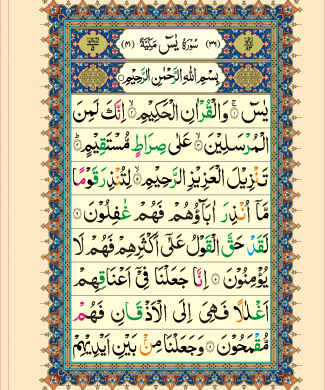 (٣٦) سُوْرَةُ يٰسٓ مَكِّيَّةٌ (٤١)
بِسْمِ اللّٰهِ الرَّحْمٰنِ الرَّحِيْمِ
يٰسٓ ۚ وَالْقُرْاٰنِ الْحَكِيْمِ ۙ اِنَّكَ لَمِنَ
الْمُرْسَلِيْنَ ۙ عَلٰى صِرَاطٍ مُّسْتَقِيْمٍ ؕ
تَنْزِيْلَ الْعَزِيْزِ الرَّحِيْمِ ۙ لِتُنْذِرَ قَوْمًا
مَّاۤ اُنْذِرَ اٰبَآؤُهُمْ فَهُمْ غٰفِلُوْنَ
لَقَدْ حَقَّ الْقَوْلُ عَلٰۤى اَكْثَرِهِمْ فَهُمْ لَا
يُؤْمِنُوْنَ اِنَّا جَعَلْنَا فِيْۤ اَعْنَاقِهِمْ
اَغْلٰلًا فَهِىَ اِلَى الْاَذْقَانِ فَهُمْ
مُّقْمَحُوْنَ وَجَعَلْنَا مِنْۢ بَيْنِ اَيْدِيْهِمْ